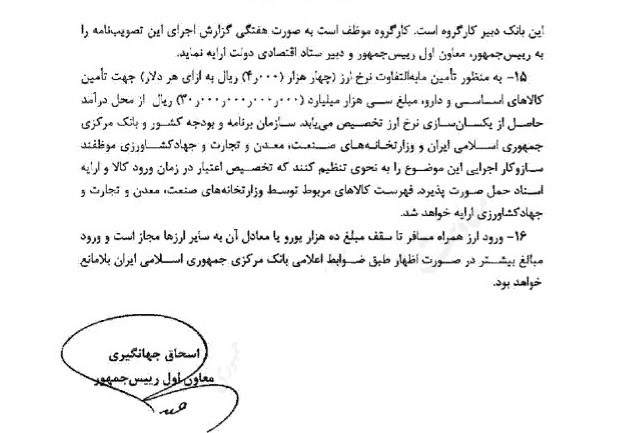 این بانک دبیر کارگروه است. کارگروه موظف است به صورت هفتگی گزارش اجرای این تصویب‌نامه را
به رییس‌جمهور، معاون اول رییس‌جمهور و دبیر ستاد اقتصادی دولت ارایه نماید.
۱۵- به منظور تأمین مابه‌التفاوت نرخ ارز (چهار هزار (۴٫۰۰۰) ریال به ازای هر دلار) جهت تأمین
کالاهای اساسی و دارو، مبلغ سی هزار میلیارد (۳۰٫۰۰۰٫۰۰۰٫۰۰۰٫۰۰۰) ریال از محل درآمد
حاصل از یکسان‌سازی نرخ ارز تخصیص می‌یابد. سازمان برنامه و بودجه کشور و بانک مرکزی
جمهوری اسلامی ایران و وزارتخانه‌های صنعت، معدن و تجارت و جهادکشاورزی موظفند
سازوکار اجرایی این موضوع را به نحوی تنظیم کنند که تخصیص اعتبار در زمان ورود کالا و ارایه
اسناد حمل صورت پذیرد. فهرست کالاهای مربوط توسط وزارتخانه‌های صنعت، معدن و تجارت و
جهادکشاورزی ارایه خواهد شد.
۱۶- ورود ارز همراه مسافر تا سقف مبلغ ده هزار یورو یا معادل آن به سایر ارزها مجاز است و ورود
مبالغ بیشتر در صورت اظهار طبق ضوابط اعلامی بانک مرکزی جمهوری اسلامی ایران بلامانع
خواهد بود.
اسحاق جهانگیری
معاون اول رییس‌جمهور